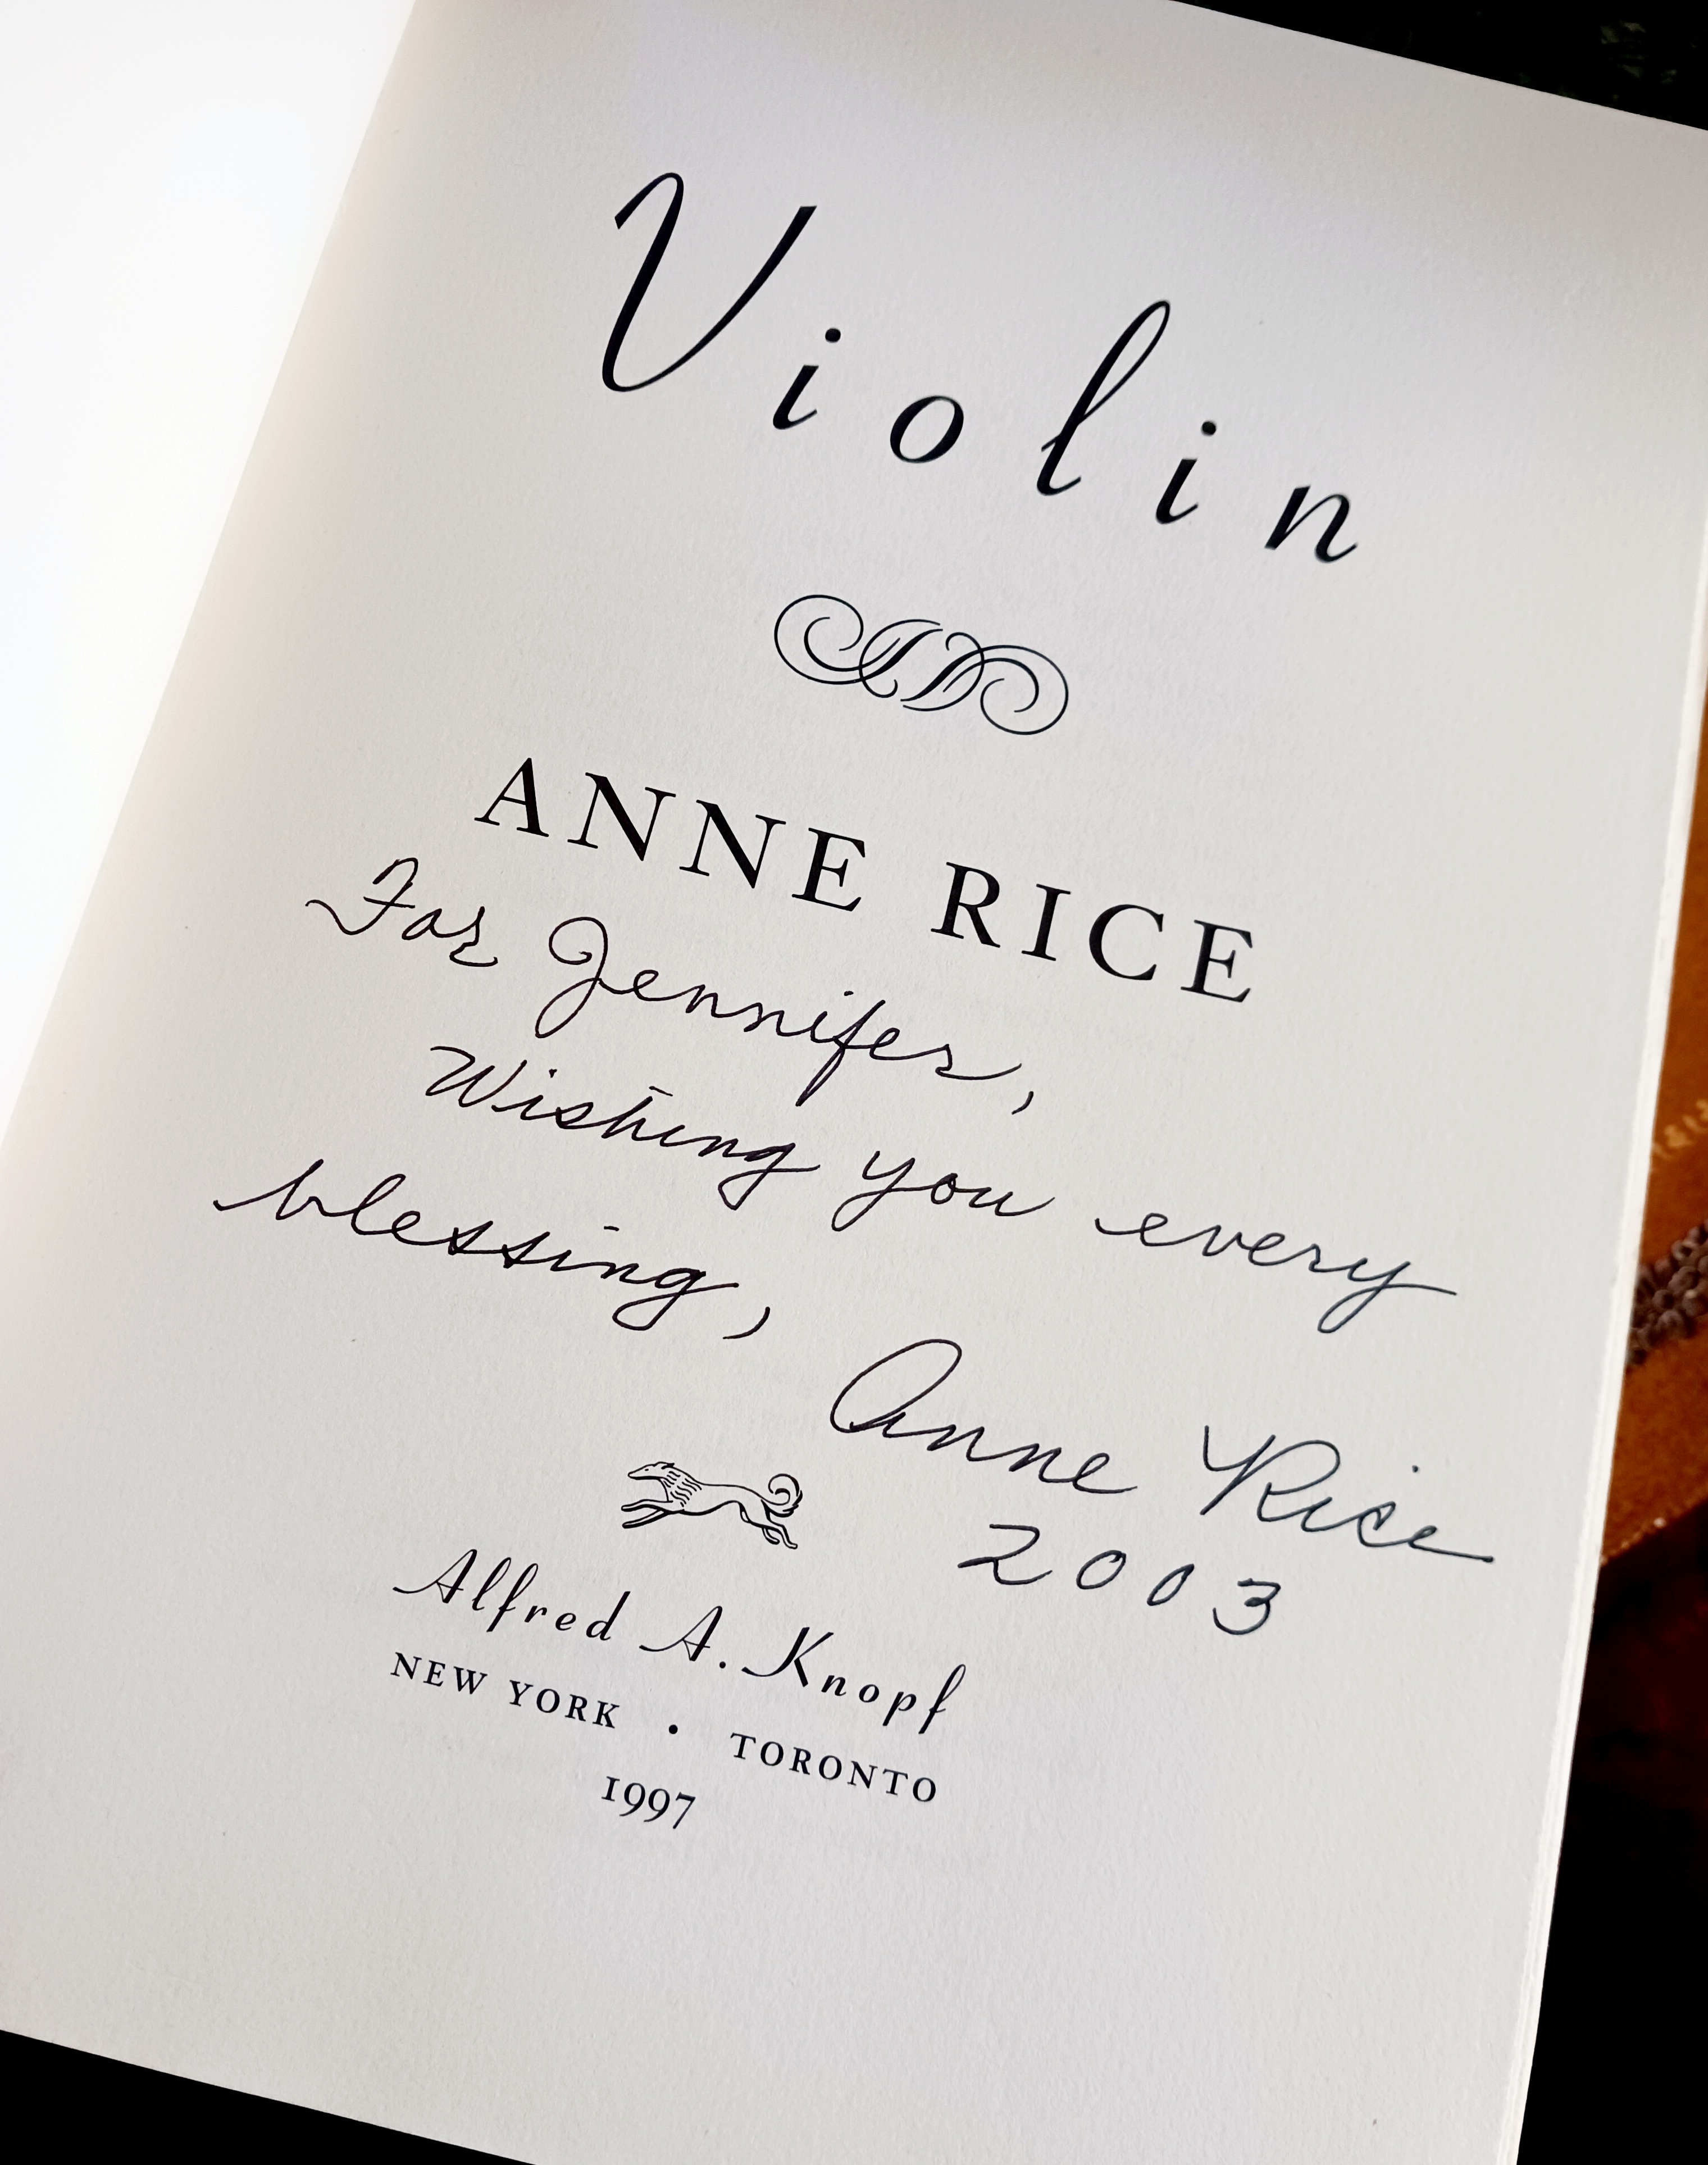 Violin
ANNE RICE
For Jennifer,
Wishing you every
blessing,
Anne Rice
2003
Alfred A. Knopf
NEW YORK • TORONTO
1997